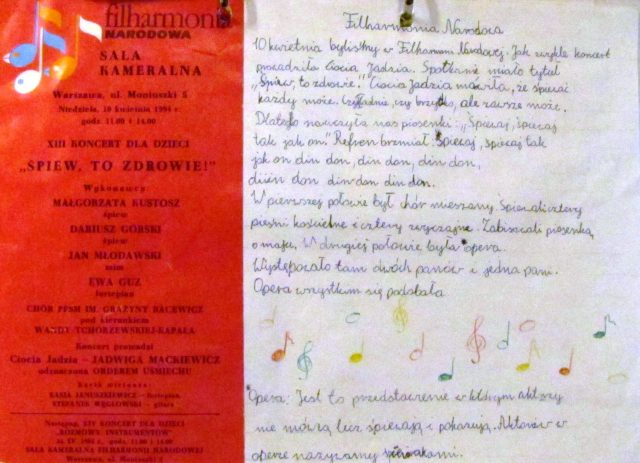 filharmonia
NARODOWA
SALA
KAMERALNA
Warszawa, ul. Moniuszki 5
Niedziela, 10 kwietnia 1994 r.
godz. 11.00 i 14.00
XIII KONCERT DLA DZIECI
„ŚPIEW, TO ZDROWIE!"
Wykonawcy:
MAŁGORZATA KUSTOSZ
śpiew
DARIUSZ GÓRSKI
śpiew
JAN MŁODAWSKI
mim
EWA GUZ
fortepian
CHÓR PPSM IM. GRAŻYNY BACEWICZ
pod kierunkiem
WANDY TCHORZEWSKIEJ-KAPAŁA
Koncert prowadzi
Ciocia Jadzia - JADWIGA MACKIEWICZ
odznaczona ORDEREM UŚMIECHU
Kącik wirtuoza
KASIA JANUSZKIEWICZ - fortepian
STEFANEK WĘGŁOWSKI - gitara
Następny, XIV KONCERT DLA DZIECI
"ROZMOWY INSTRUMENTÓW"
IV 1994 r., godz. 11.00 i 14.00
SALA KAMERALNA FILHARMONII NARODOWEJ
Warszawa, ul. Moniuszki 5
Filharmonia Narodoca
10 kwietnia byliśmy w Filharmoni Narodowej. Jak zwykle koncert
prowadziła Ciocia Jadzia. Spotkanie miało tytuł
„Śpiew, to zdrowie." Ciocia Jadzia mówiła, że śpiewać
każdy może. Czy ładnie, czy brzydko, ale zawsze może.
Dlatego nauczyła nas piosenki: „Śpiewaj, śpiewaj
tak jak on" Refren brzmiał: Śpiewaj, śpiewaj tak
jak on din don, din don, din don,
diien don din don din don.
W pierwszej połowie był chór mieszany. Śpiewali cztery
pieśni kościelne i cztery zwyczajne. Zaśpiewali piosenkę
o maju. W drugiej połowie była opera.
Występowało tam dwóch panów i jedna pani.
Opera wszystkim się podobała
Opera: Jest to przedstawienie w którym aktorzy
nie mówią lecz śpiewają i pokazują. Aktorów w
operze nazywamy śpiewakami.